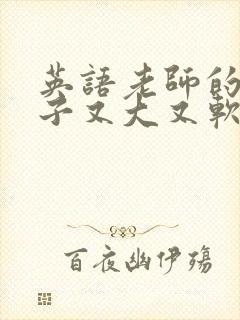 英語老師的
子又大又軟
百夜幽伊殤